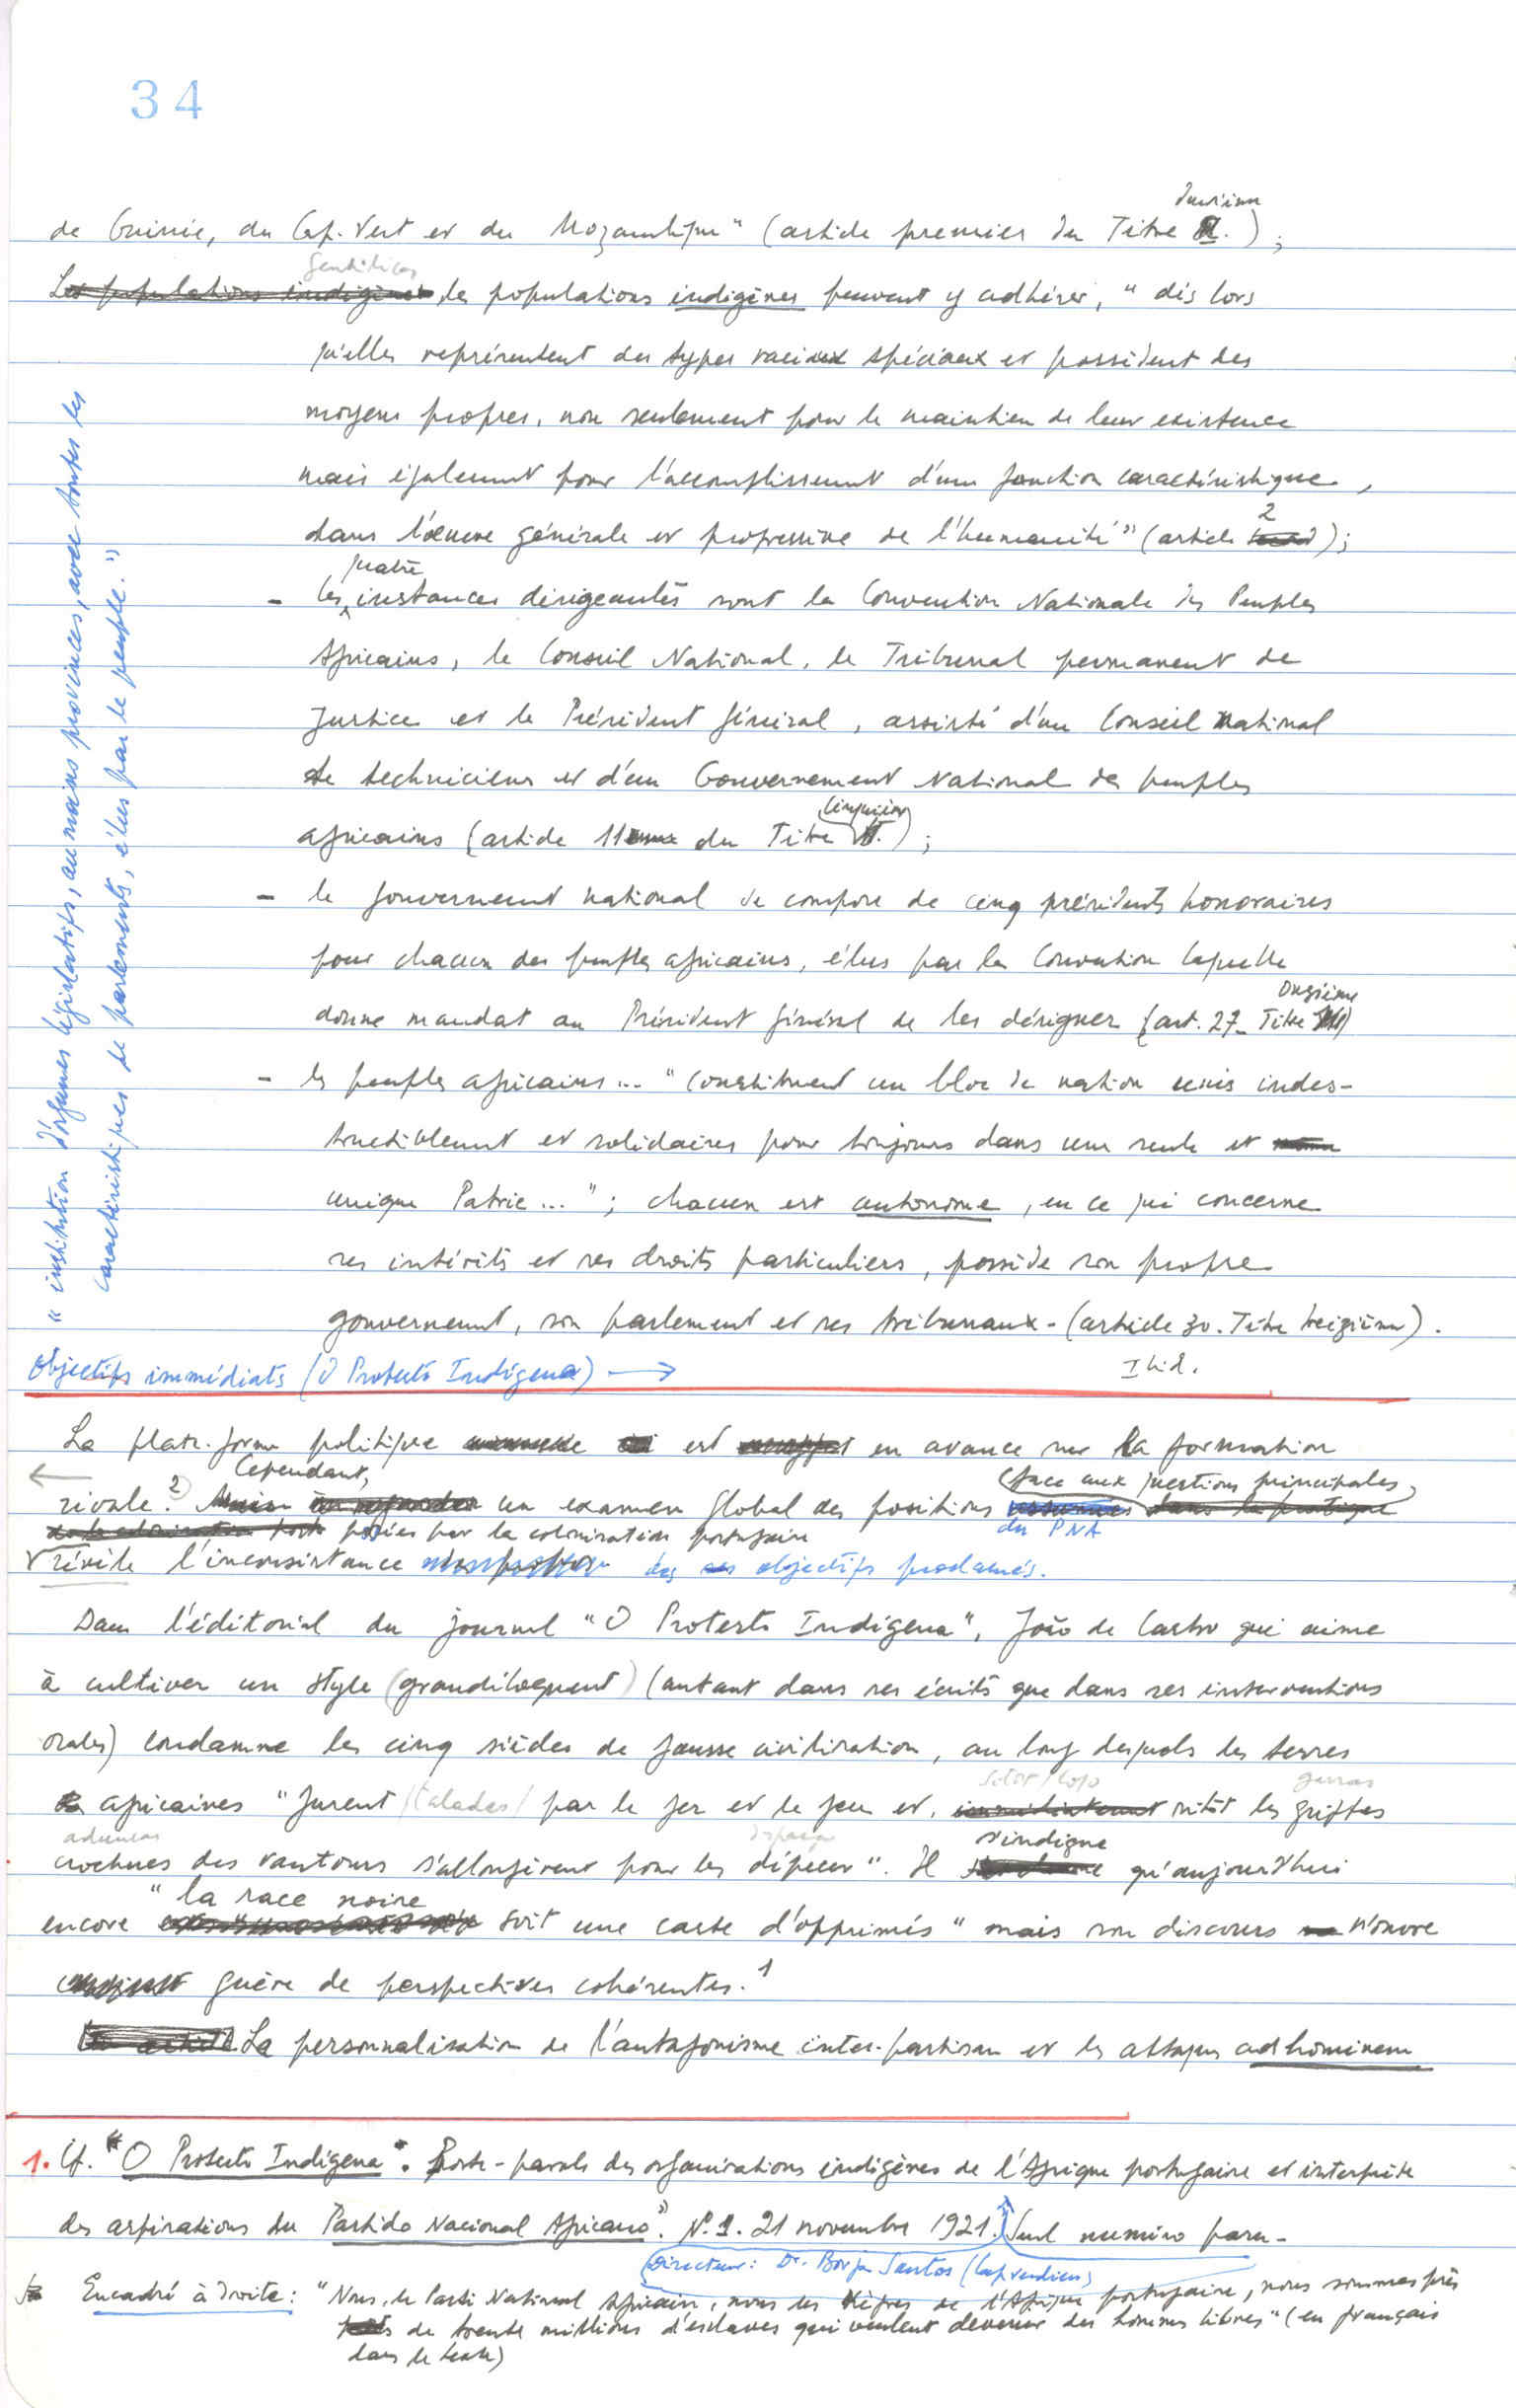 34
deuxième
de Guinée, du Cap-Vert et du Mozambique" (article premier du Titre .) ;
gentílicas
Les populations indigènes les populations indigènes peuvent y adhérer, " dès lors
qu'elles représentent des types raciaux spéciaux et possèdent des
moyens propres, non seulement pour le maintien de leur existence
mais également pour l'accomplissement d'une fonction caractéristique,
dans l'œuvre générale et progressive de l'humanité" (article 2);
quatre
- les instances dirigeantes sont la Convention Nationale des Peuples
Africains, le Conseil National, le Tribunal permanent de
Justice et le Président général, assisté d'un Conseil national
de techniciens et d'un Gouvernement National des peuples
cinquième
africains (article 11 du Titre V.) ;
- le gouvernement national se compose de cinq présidents honoraires
pour chacun des peuples africains, élus par la Convention laquelle
onzième
donne mandat au Président général de les désigner (art. 27 - Titre )
- les peuples africains... "constituent un bloc de nation unis indes-
tructiblement et solidaires pour toujours dans une seule et
unique Patrie..." ; chacun est autonome, en ce qui concerne
ses intérêts et ses droits particuliers, possède son propre
gouvernement, son parlement et ses tribunaux - (article 30. Titre treizième).
Ibid.
" institution d'organes législatifs, au moins provinces, avec toutes les
caractéristiques de parlements, élus par le peuple."
Objectifs immédiats (O Protesto Indígena) →
La plate-forme politique est en avance sur la formation
← Cependant, (face aux questions principales,
rivale.² un examen global des positions dans la pratique
du PNA
posées par la colonisation portugaise
révèle l'inconsistance des objectifs proclamés.
Dans l'éditorial du journal "O Protesto Indígena", João de Castro qui aime
à cultiver un style (grandiloquent) (autant dans ses écrits que dans ses interventions
orales) condamne les cinq siècles de fausse civilisation, au long desquels les terres
garras
africaines "furent /taladas/ par le fer et le feu et, immédiatement sitôt les griffes
aduncas
s'indigne
crochues des vautours s'allongèrent pour les dépecer". Il qu'aujourd'hui
" la race noire
encore soit une caste d'opprimés" mais son discours n'ouvre
guère de perspectives cohérentes.¹
La personnalisation de l'antagonisme inter-partisan et les attaques ad hominem
1. Cf. "O Protesto Indígena". Porte-parole des organisations indigènes de l'Afrique portugaise et interprète
des aspirations du Partido Nacional Africano". N.º 1. 21 novembre 1921. Seul numéro paru -
Directeur: Dr. Borja Santos (Capverdien)
Encadré à droite : "Nous, le Parti National Africain, nous les Nègres de l'Afrique portugaise, nous sommes près
de trente millions d'esclaves qui veulent devenir des hommes libres" (en français
dans le texte)